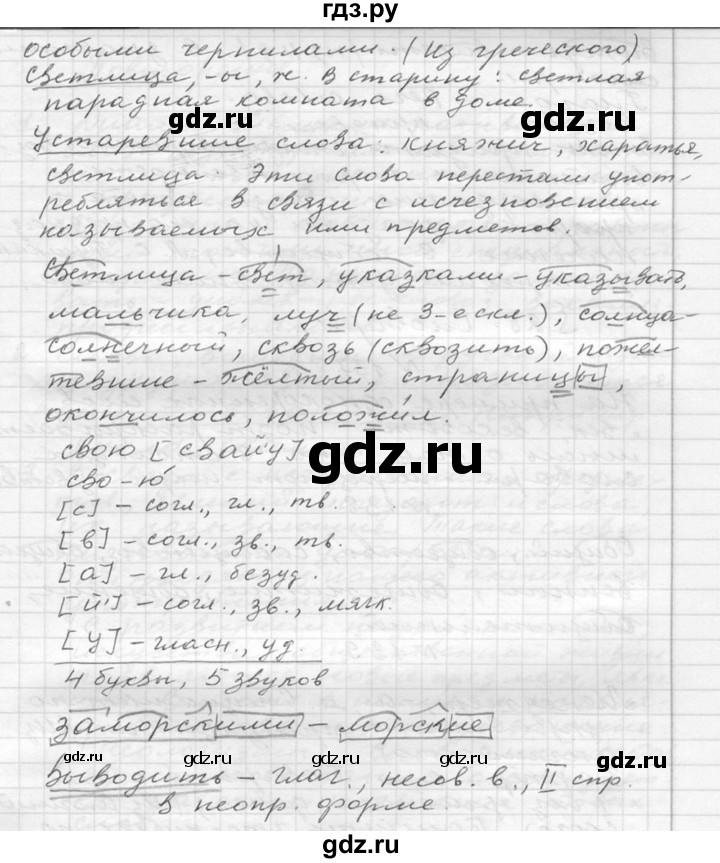 гдз.ру
особыми чернилами. (Из греческого)
Светлица, -ы, ж. В старину: светлая
парадная комната в доме.
gdz.ru
gdz.ru
Устаревшие слова: княжич, харатья,
светлица. Эти слова перестали упот-
ребляться в связи с исчезновением
называемых ими предметов.
Светлица - свет, указками - указывать,
мальчика, луч (не 3-е скл.), солнца-
солнечный, сквозь (сквозить), пожел-
тевшие - жёлтый, страницы,
окончилось, положил.
свою [свайу]
gdz.ru
сво-ю
[с] - согл., гл., тв.
gdz.ru
[в] - согл., зв., тв.
[а] - гл., безуд.
gdz.ru
gdz.ru
[й'] - согл., зв., мягк.
[у] - гласн., уд.
4 буквы, 5 звуков
заморскими - морские
gdz.ru
gdz.ru
gdz.ru
gdz.ru
Выводить - глаг., несов. в., II спр.
в неопр. форме
gdz.ru
gdz.ru
gdz.ru